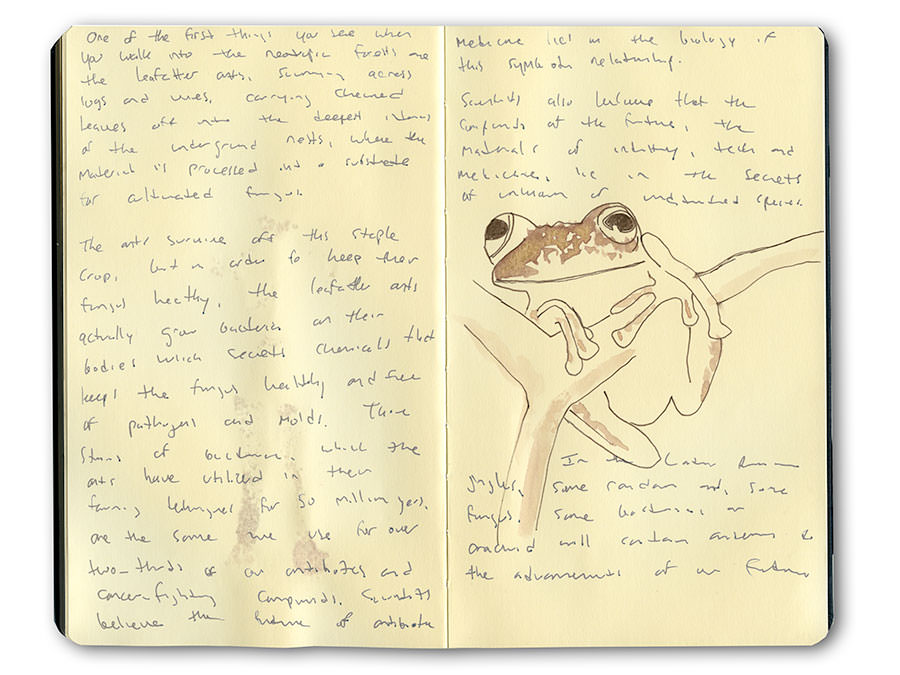 One of the first things you see when
you walk into the neotropic forests are
the leafcutter ants, scurrying across
logs and vines, carrying chewed
leaves off into the deepest
of the underground nests, where the
material is processed into a substrate
for cultivated fungus.
The ants survive off this staple
crop, but in order to keep their
fungus healthy, the leafcutter ants
actually grow bacteria on their
bodies which secrets chemicals that
keeps the fungus healthy and free
of pathogens and molds. These
strains of bacteria which the
ants have utilized in their
farming techniques for 50 million years,
are the same we use for over
two-thirds of our antibiotics and
cancer-fighting compounds. Scientists
believe the future of antibiotic
medicine lies in the biology of
this symbiotic relationship.
Scientists also believe that the
compounds of the future, the
materials of industry, tech and
medicine, lie in the secrets
of unknown or species.
In the
jungles, some random ant, some
fungus, some bacterium or
arachnid will contain answers to
the advancements of our future